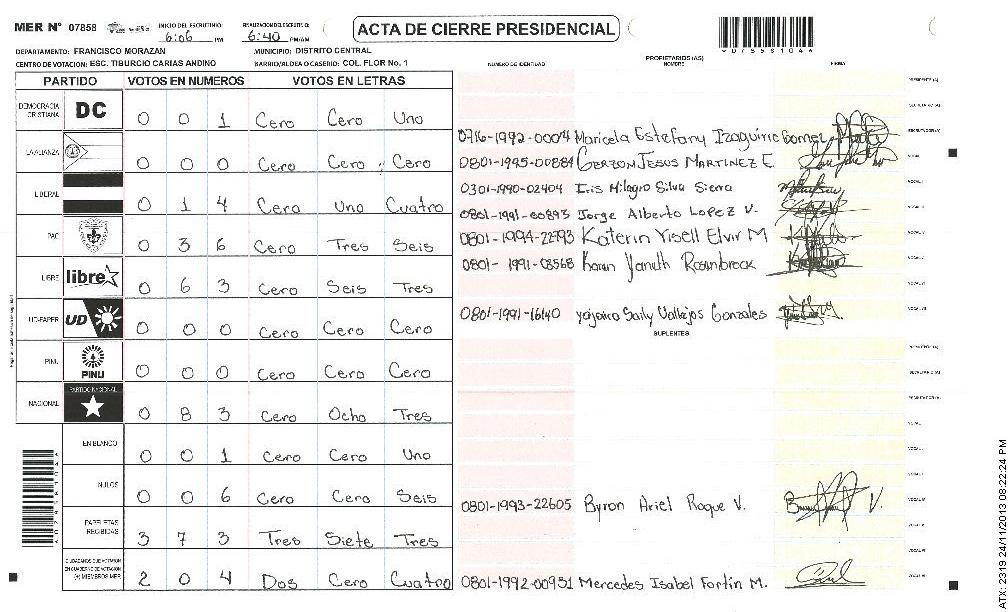 MER N° 07858
INICIO DEL ESCRUTINIO: 6:06 PM
FINALIZACION DEL ESCRUTINIO: 6:40 PM/AM
ACTA DE CIERRE PRESIDENCIAL
DEPARTAMENTO: FRANCISCO MORAZAN
MUNICIPIO: DISTRITO CENTRAL
CENTRO DE VOTACION: ESC. TIBURCIO CARIAS ANDINO
BARRIO/ALDEA O CASERIO: COL. FLOR No. 1
PARTIDO VOTOS EN NUMEROS VOTOS EN LETRAS
DEMOCRACIA CRISTIANA DC 0 0 1 Cero Cero Uno
LA ALIANZA 0 0 0 Cero Cero Cero
LIBERAL 0 1 4 Cero Uno Cuatro
PAC 0 3 6 Cero Tres Seis
LIBRE libre 0 6 3 Cero Seis Tres
UD-FAPER UD 0 0 0 Cero Cero Cero
PINU PINU 0 0 0 Cero Cero Cero
NACIONAL PARTIDO NACIONAL 0 8 3 Cero Ocho Tres
EN BLANCO 0 0 1 Cero Cero Uno
NULOS 0 0 6 Cero Cero Seis
PAPELETAS RECIBIDAS 3 7 3 Tres Siete Tres
CIUDADANOS QUE VOTARON EN CUADERNO DE VOTACION (+) MIEMBROS MER 2 0 4 Dos Cero Cuatro
PROPIETARIOS (AS)
NUMERO DE IDENTIDAD NOMBRE FIRMA
PRESIDENTE (A)
SECRETARIO (A)
0716-1992-0004 Maricela Estefany Izaguirre Gomez ESCRUTADOR (A)
0801-1995-00884 GERZON JESUS MARTINEZ E.
0301-1990-02404 Iris Milagro Silva Sierra
0801-1991-00893 Jorge Alberto Lopez V.
0801-1994-22793 Katerin Yisell Elvir M
0801-1991-08568 Karen Yanuth Rosenbrock
0801-1991-16140 yojaira Saily Vallejos Gonzales
SUPLENTES
0801-1993-22605 Byron Ariel Roque V.
0801-1992-00951 Mercedes Isabel Fortin M.
ATX-2319 24/11/2013 08:22:24 PM